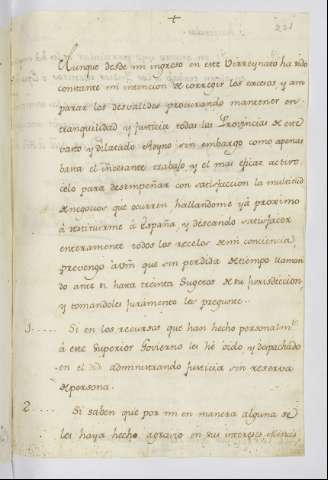 +
221
Aunque desde mi ingreso en este Virreynato ha sido
constante mi intencion de corregir los excesos y am
parar los desvalidos procurando mantener en
tranquilidad y justicia todas las Provincias de este
basto y dilatado Reyno sin embargo como apenas
basta el incesante trabajo, y el mas eficaz activo
celo para desempeñar con satisfaccion la multitud
de negocios que ocurren hallandome yá proximo
á restituirme á España, y deseando satisfacer
enteramente todos los recelos de mi conciencia,
prevengo á vm que sin perdida de tiempo llaman
do ante si hasta treinta Sugetos de su Jurisdiccion,
y tomandoles juramento les pregunte.
1..... Si en los recursos que han hecho personalmte
á este Superior Govierno les hé oído, y despachado
en el administrando justicia sin reserva
de persona.
2..... Si saben que por mi en manera alguna se
les haya hecho agravio en sus intereses